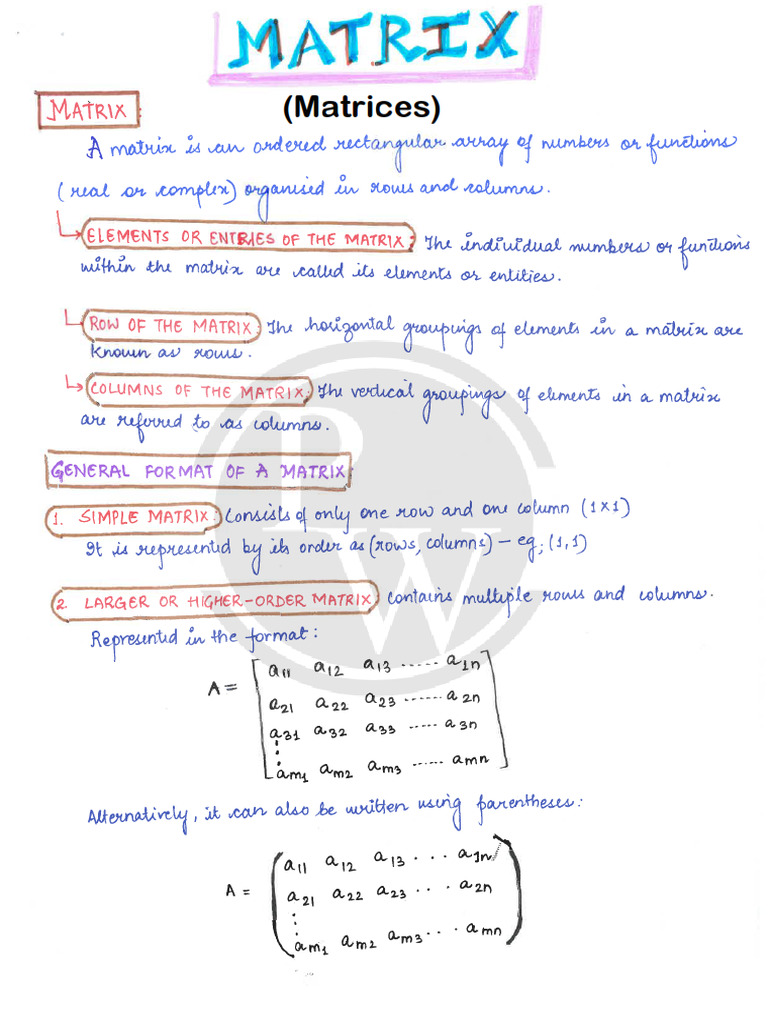 MATRIX
MATRIX:
(Matrices)
A matrix is an ordered rectangular array of numbers or functions
(real or complex) organised in rows and columns.
ELEMENTS OR ENTRIES OF THE MATRIX: The individual numbers or functions
within the matrix are called its elements or entities.
ROW OF THE MATRIX: The horizontal groupings of elements in a matrix are
known as rows.
COLUMNS OF THE MATRIX: The vertical groupings of elements in a matrix
are referred to as columns.
GENERAL FORMAT OF A MATRIX:
1. SIMPLE MATRIX: Consists of only one row and one column (1×1)
It is represented by its order as (rows, columns) – eg; (1,1)
2. LARGER OR HIGHER-ORDER MATRIX: contains multiple rows and columns.
Represented in the format:
a11 a12 a13 ...... a1n
A =
a21 a22 a23 ...... a2n
a31 a32 a33 ...... a3n
⋮
am1 am2 am3 ...... amn
Alternatively, it can also be written using parentheses:
a11 a12 a13 ... a1n
A =
a21 a22 a23 ... a2n
⋮
am1 am2 am3 ... amn
PW